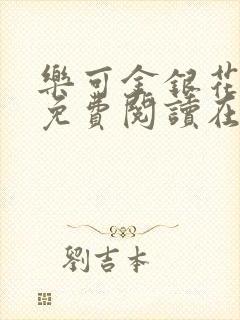 樂可金銀花
免費閱讀在
劉吉本